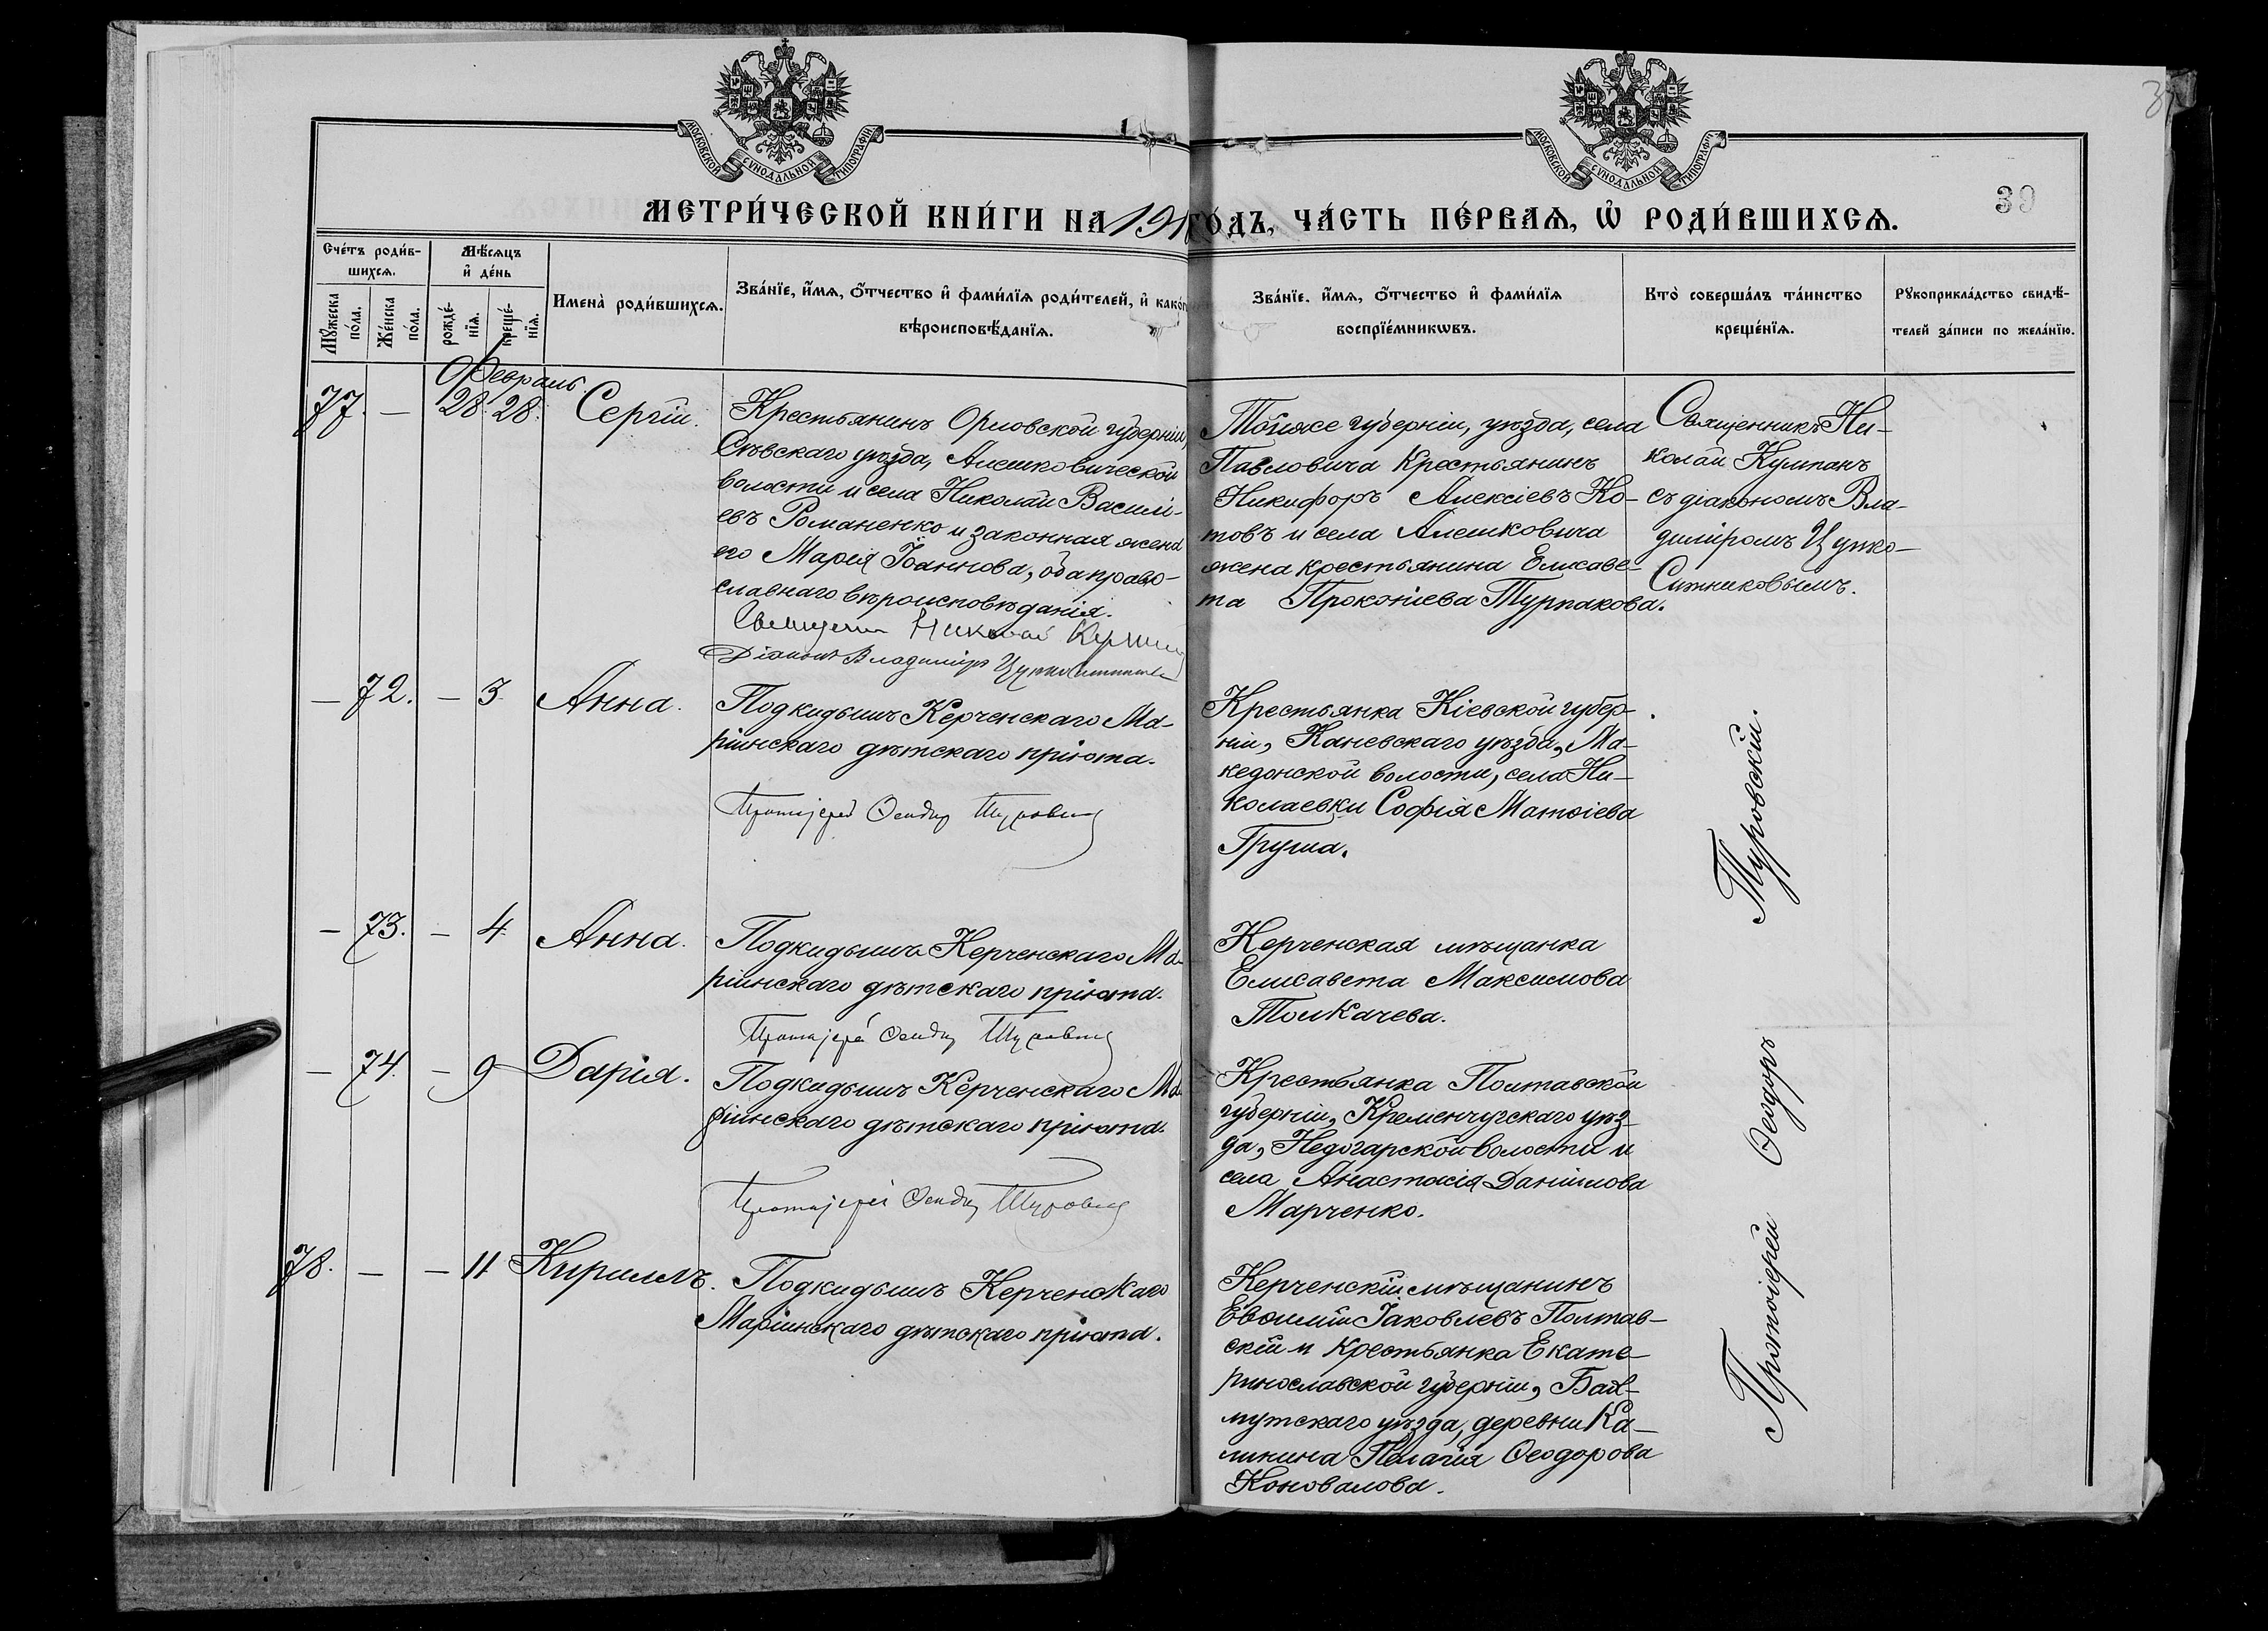 МОСКОВСКОЙ СѴНОДАЛЬНОЙ ТИПОГРАФІИ
МОСКОВСКОЙ СѴНОДАЛЬНОЙ ТИПОГРАФІИ
39
МЕТРИ́ЧЕСКОЙ КНИ́ГИ НА 191 ГО́ДЪ, ЧА́СТЬ ПЕ́РВАѦ, Ѡ҆ РОДИ́ВШИХСѦ.
Сче́тъ роди́в-
шихсѧ.
Мꙋ́жеска по́ла.
Же́нска по́ла.
Мѣ́сѧцъ
и҆ де́нь
рожде́-
нїѧ.
креще́-
нїѧ.
Имена̀ роди́вшихсѧ.
Зва́нїе, и҆́мѧ, ѻ҆́тчество и҆ фами́лїѧ роди́телей, и҆ како́г
вѣроисповѣ́данїѧ.
Зва́нїе, и҆́мѧ, ѻ҆́тчество и҆ фами́лїѧ
воспрїе́мникѡвъ.
Кто̀ соверша́лъ та́инство
креще́нїѧ.
Рꙋкоприкла́дство свидѣ́-
телей за́писи по жела́нїю.
Февраль
77. — 28. 28. Сергій.
Крестьянинъ Орловской губерніи,
Сѣвскаго уѣзда, Алешковической
волости и села Николай Василі-
евъ Романенко и законная жена
его Марія Іоаннова, оба право-
славнаго вѣроисповѣданія.
Священникъ Николай Кумпанъ
Діаконъ Владиміръ Цупко
Тойже губерніи, уѣзда, села
Павловича крестьянинъ
Никифоръ Алексіевъ Ко-
товъ и села Алешковича
жена крестьянина Елисаве-
та Прокопіева Турпакова.
Священникъ Ни-
колай Кумпанъ
съ діакономъ Вла-
диміромъ Цупко-
Ситниковымъ.
— 72. — 3. Анна.
Подкидышъ Керченскаго Ма-
ріинскаго дѣтскаго пріюта.
Протоіерей Ѳеодоръ Туровскій
Крестьянка Кіевской губер-
ніи, Каневскаго уѣзда, Ма-
кедонской волости, села Ни-
колаевки Софія Матѳіева
Груша.
— 73. — 4. Анна.
Подкидышъ Керченскаго Ма-
ріинскаго дѣтскаго пріюта.
Протоіерей Ѳеодоръ Туровскій
Керченская мѣщанка
Елисавета Максимова
Толкачева.
— 74. — 9 Дарія.
Подкидышъ Керченскаго Ма-
ріинскаго дѣтскаго пріюта.
Протоіерей Ѳеодоръ Туровскій
Крестьянка Полтавской
губерніи, Кременчугскаго уѣз-
да, Недогарской волости и
села Анастасія Даніилова
Марченко.
78. — — 11 Кириллъ.
Подкидышъ Керченскаго
Маріинскаго дѣтскаго пріюта.
Керченскій мѣщанинъ
Евѳимій Іаковлевъ Полтав-
скій и крестьянка Екате-
ринославской губерніи, Бах-
мутскаго уѣзда, деревни Ка-
линина Пелагія Ѳеодорова
Коновалова.
Протоіерей Ѳеодоръ Туровскій.